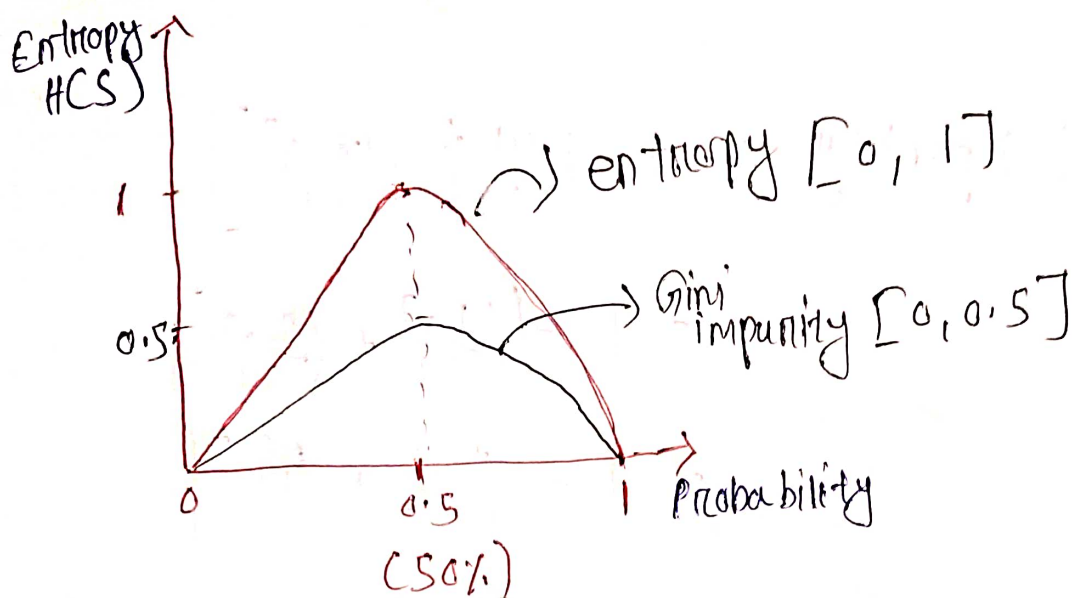 Entropy
H(S)
1
entropy [0, 1]
0.5
Gini
impurity [0, 0.5]
0
0.5
1
Probability
(50%)